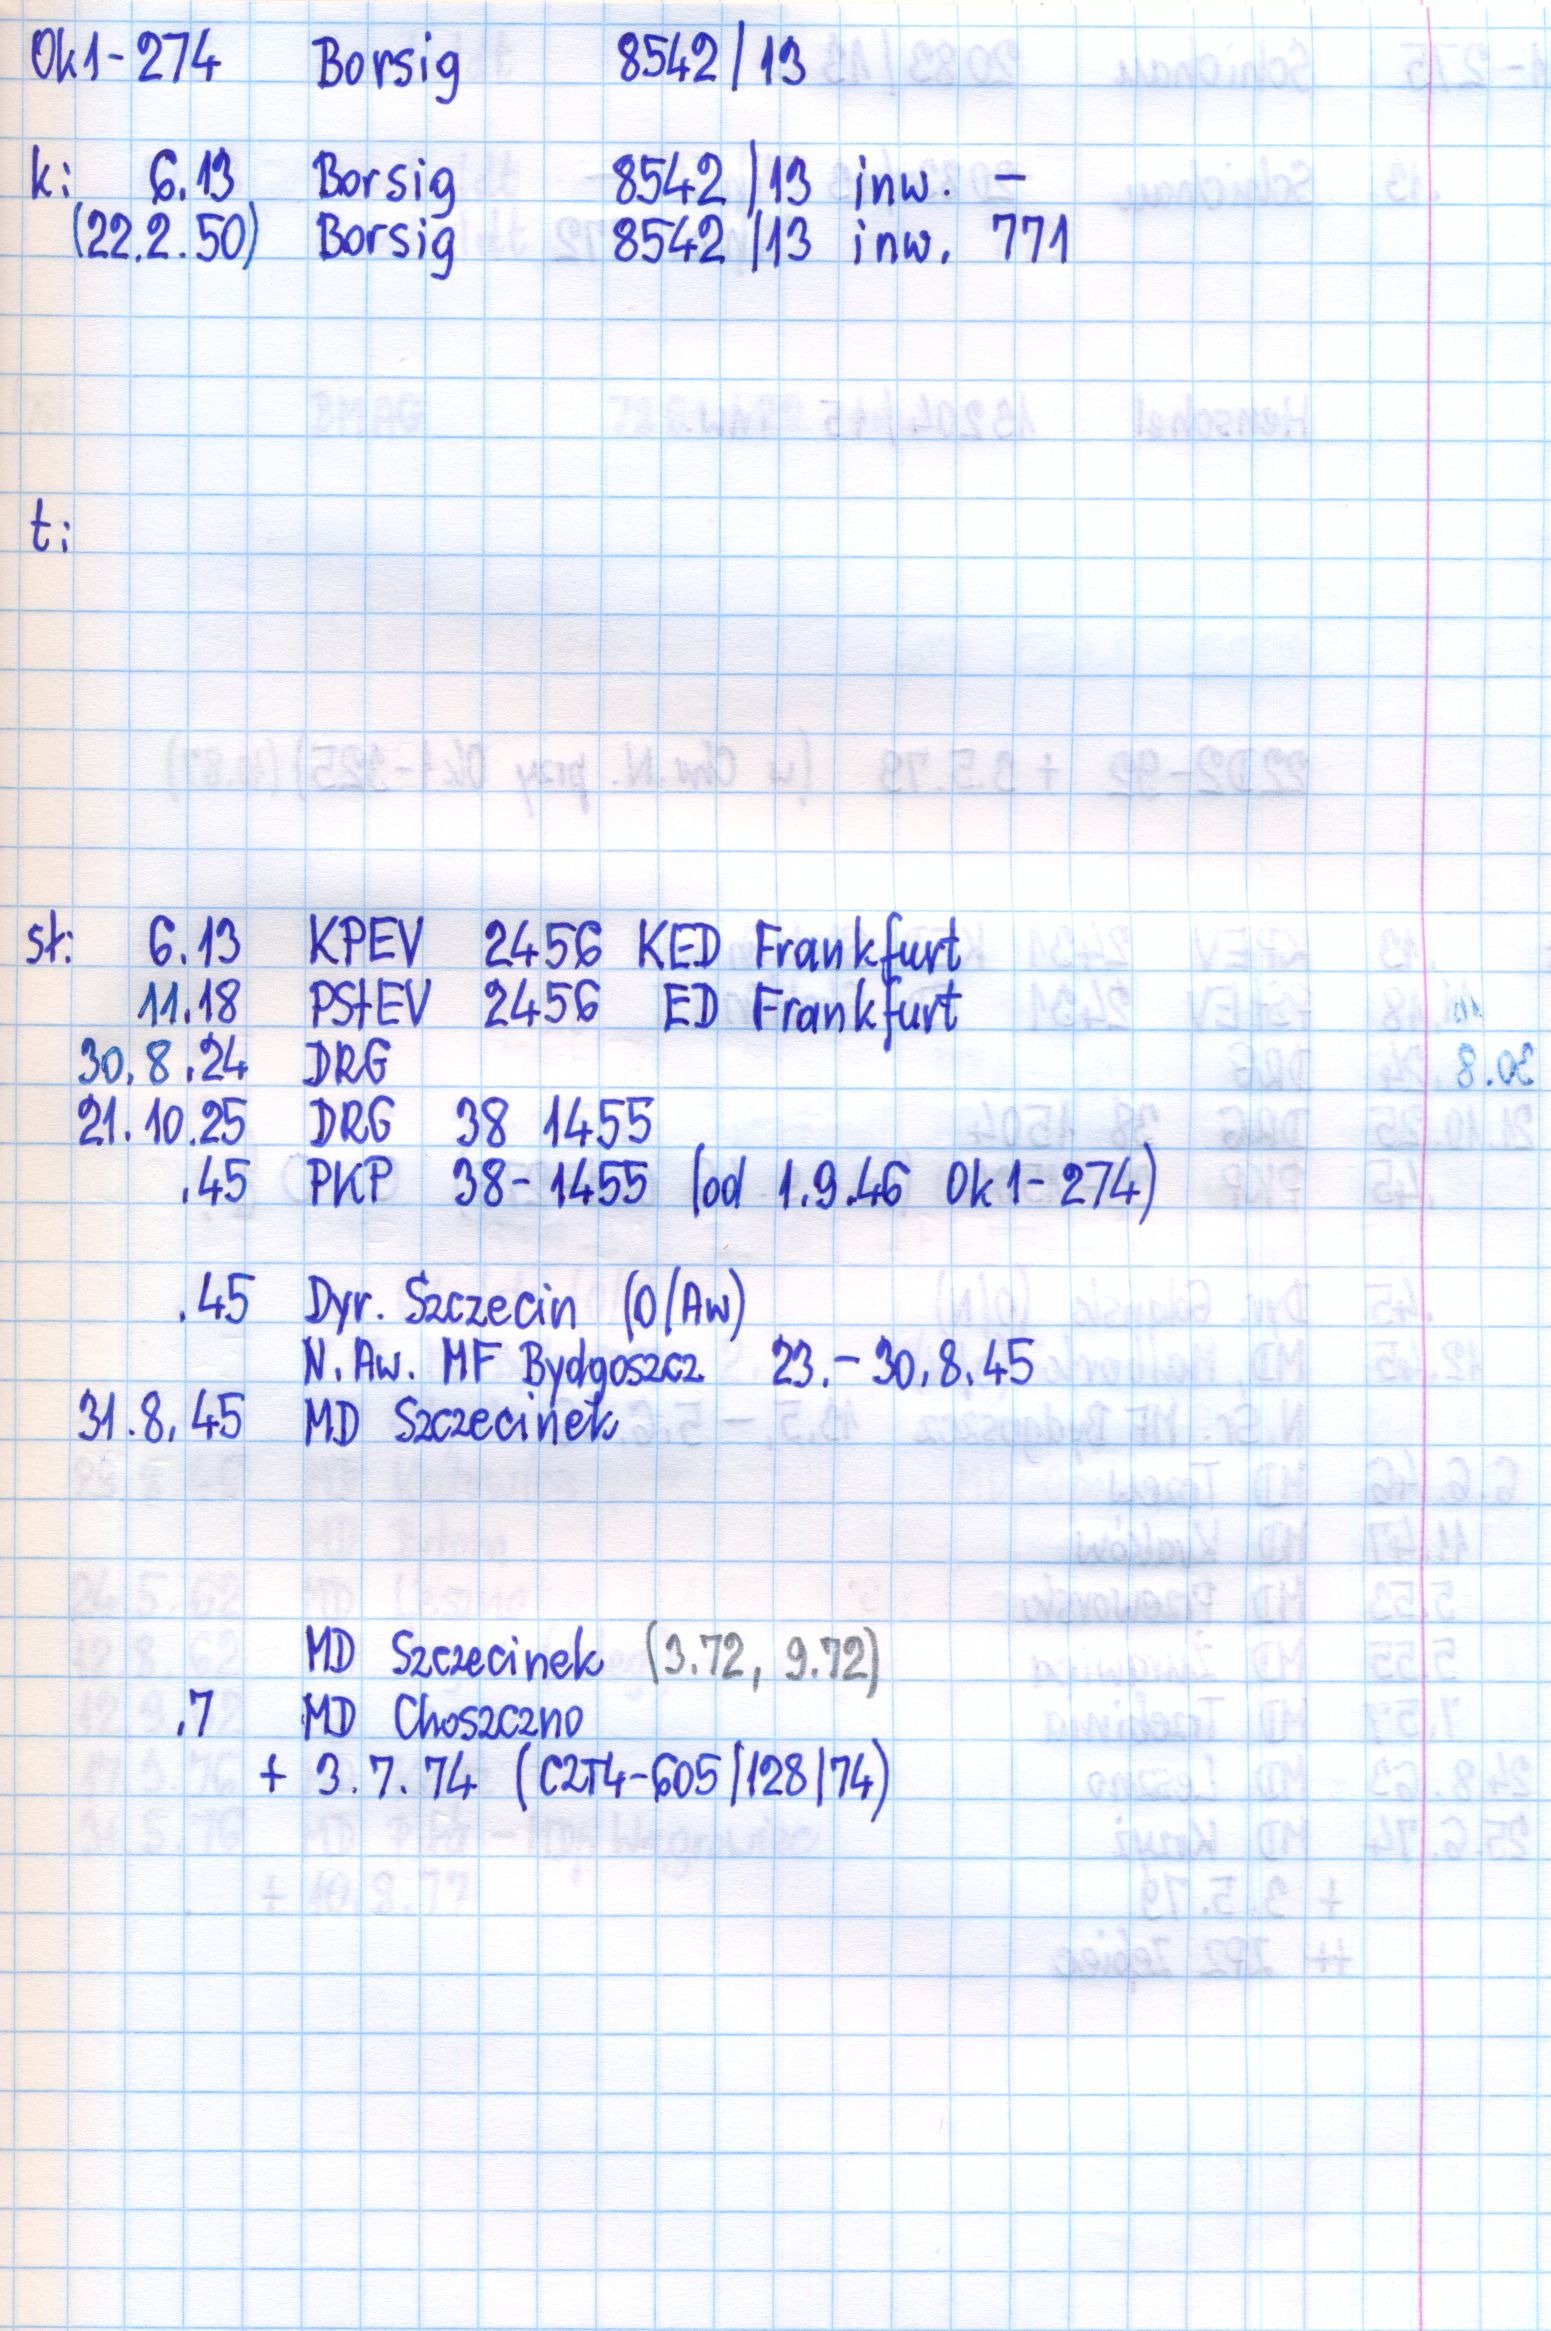 Ok1-274 Borsig 8542/13
k: 6.13 Borsig 8542/13 inw. -
(22.2.50) Borsig 8542/13 inw. 771
t:
st: 6.13 KPEV 2456 KED Frankfurt
11.18 PStEV 2456 ED Frankfurt
30.8.24 DRG
21.10.25 DRG 38 1455
.45 PKP 38-1455 (od 1.9.46 Ok1-274)
.45 Dyr. Szczecin (O/Aw)
N.Aw. MF Bydgoszcz 23.-30.8.45
31.8.45 MD Szczecinek
MD Szczecinek (3.72, 9.72)
.7 MD Choszczno
+ 3.7.74 (C2T4-605/128/74)